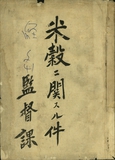 米穀ニ関スル件
監督課